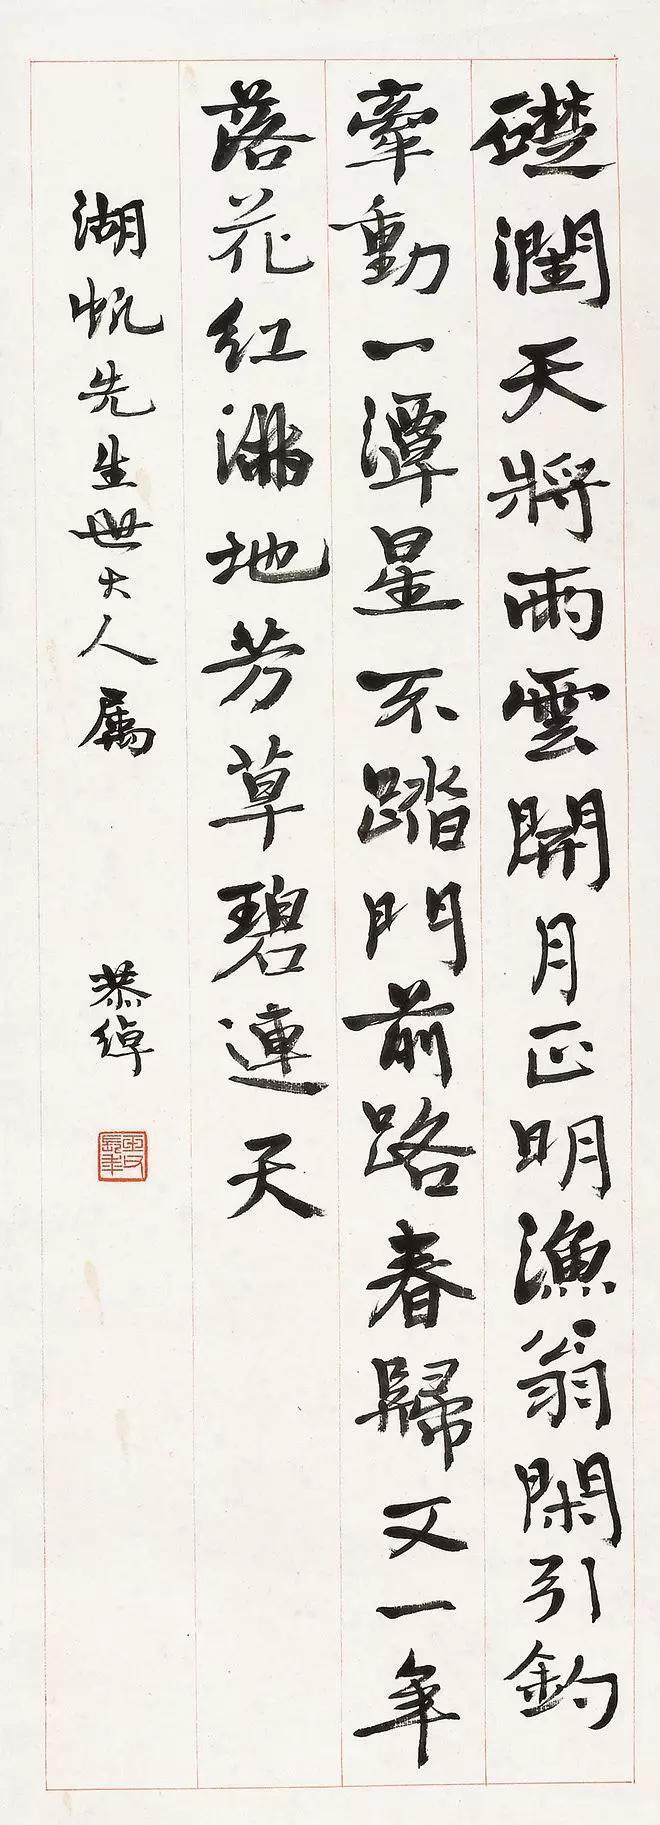 礎潤天將雨雲開月正明漁翁閑引釣
牽動一潭星不踏門前路春歸又一年
落花紅滿地芳草碧連天
湖帆先生世大人属
恭綽